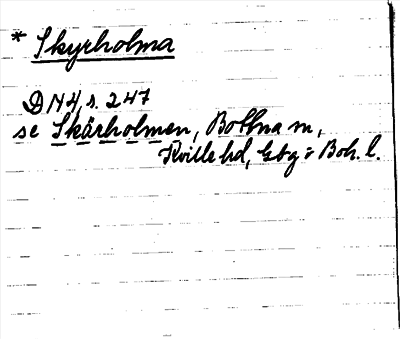 * Skyrholma
DN4, s. 247
se Skärholmen, Bottna sn,
Kville hd, Gbg o Boh. l.